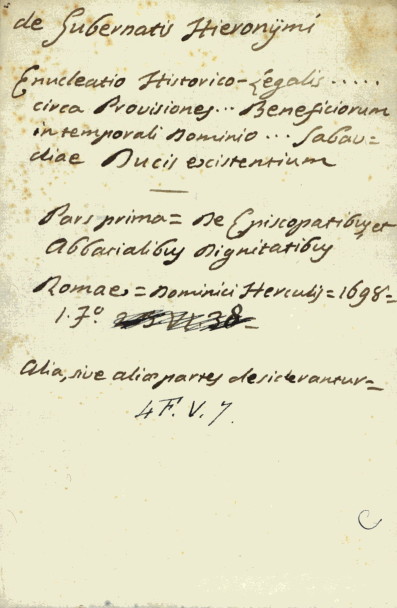 de Gubernatis Hieronÿmi
Enucleatio Historico-Legalis .....
circa Provisiones .. Beneficiorum
in temporali Dominio ... Sabau=
diae Ducis existentium
Pars prima = De Episcopatibus, et
Abbatialibus Dignitatibus
Romae = Dominici Herculis = 1698 =
1. 7.º
Alia, sive aliæ partes desiderantur =
4 F. V. 7.